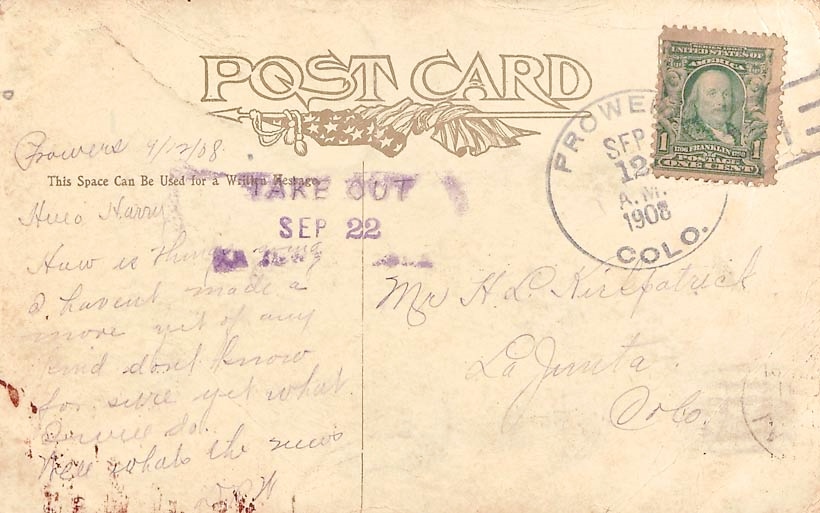 POST CARD
SERIES 1902
UNITED STATES OF
AMERICA
1 FRANKLIN 1
POSTAGE
ONE CENT
PROWE
SEP
12
A.M.
1908
COLO.
Prowers 9/12/08.
This Space Can Be Used for a Written Message.
TAKE OUT
SEP 22
Hello Harry
How is things going
I havent made a
move yet of any
kind dont know
for sure yet what
I will do.
Well whats the news
Mr H. L. Kirkpatrick
La Junta.
Colo.